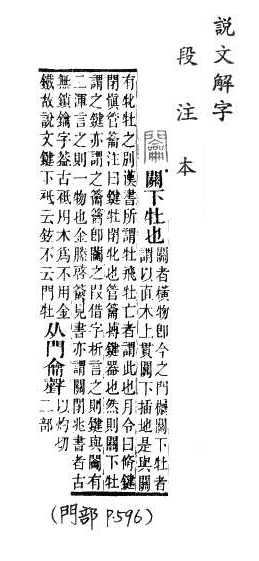 說文解字
段注本
關下牡也
關者橫物即今之門㯖關下牡者
謂以直木上貫關下插地是與關
有牝牡之別漢書所謂牡飛牡亡者謂此也月令曰脩鍵
閉愼管籥注曰鍵牡閉牝也管籥搏鍵器也然則關下牡
謂之鍵亦謂之籥籥即𨷲之叚借字析言之則鍵與𨷲有
二渾言之則一物也金縢啓籥見書亦謂關閉兆書者古
無鎖鑰字葢古衹用木爲不用金
鐵故說文鍵下衹云鉉不云門牡
从門龠聲
以灼切
二部
(門部 P.596)